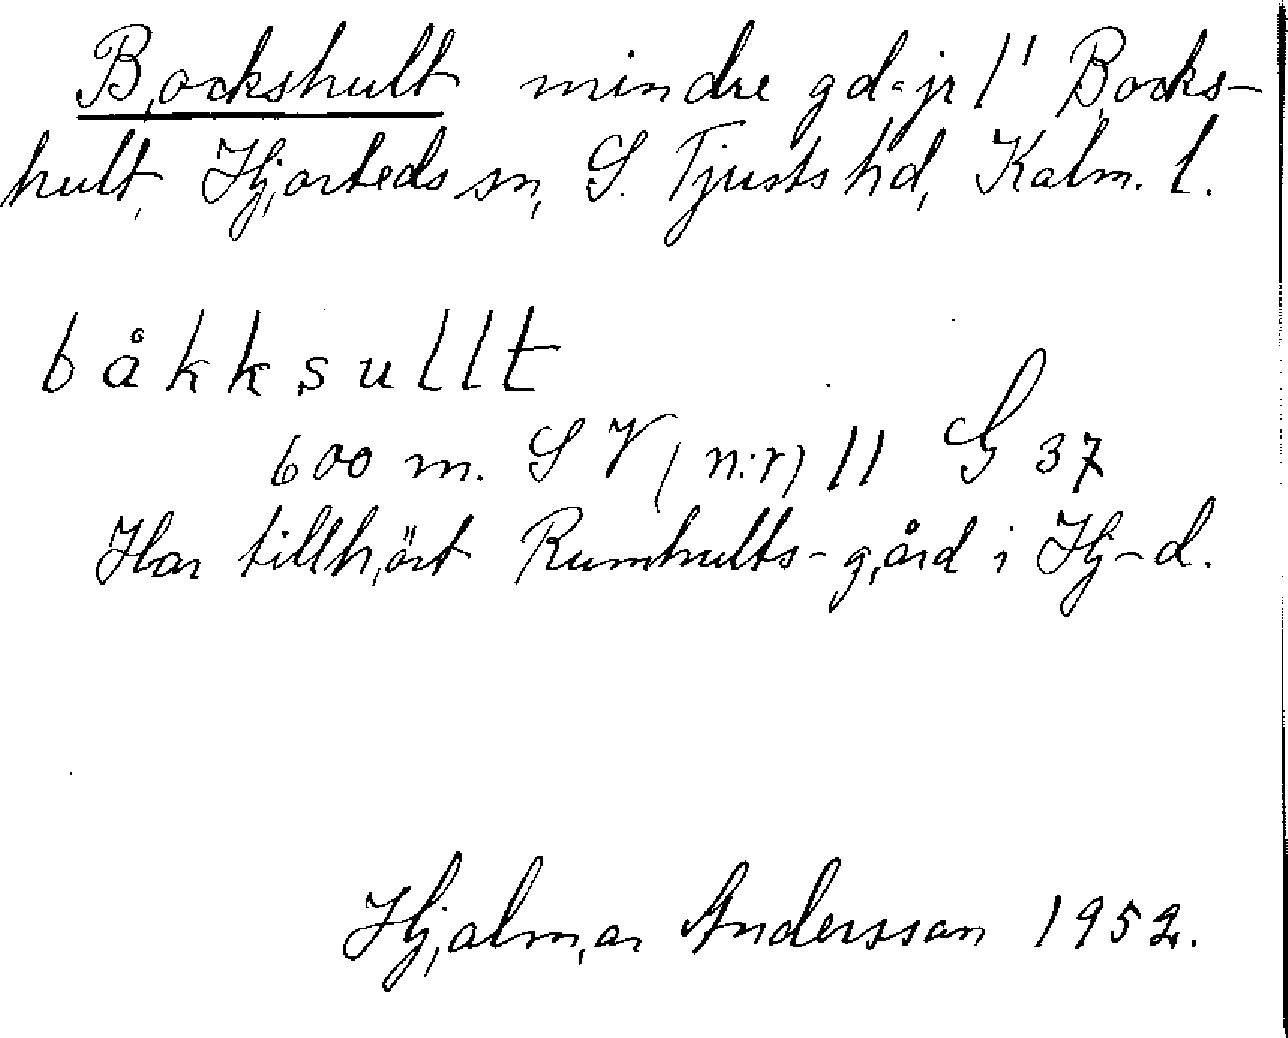 Bockshult mindre gd-jr 1' Bocks-
hult, Hjorteds sn, S. Tjusts hd, Kalm. l.
båkksullt
600 m. SV (n:r) 11 G 37
Har tillhört Rumhults-gård i Hj-d.
Hjalmar Andersson 1952.